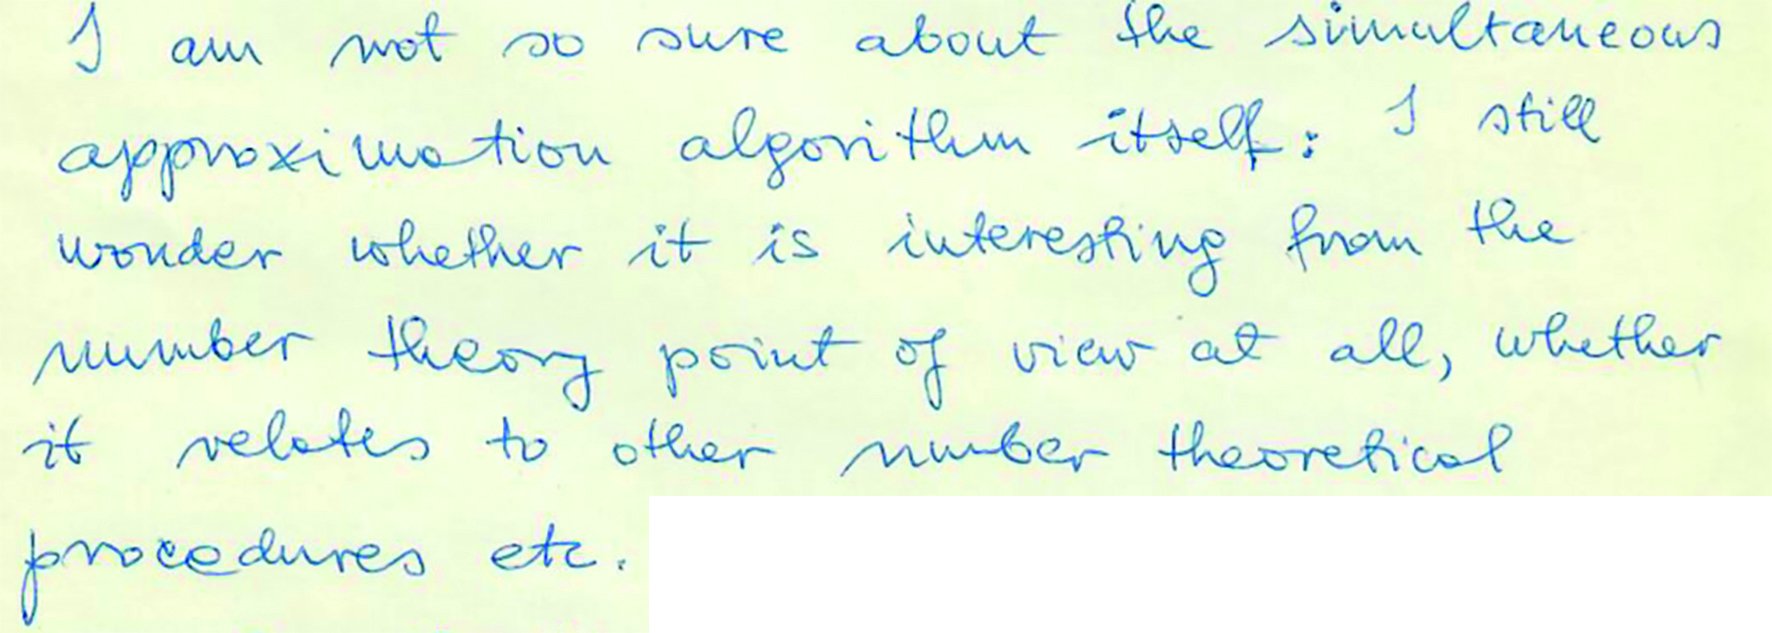 I am not so sure about the simultaneous
approximation algorithm itself: I still
wonder whether it is interesting from the
number theory point of view at all, whether
it relates to other number theoretical
procedures etc.